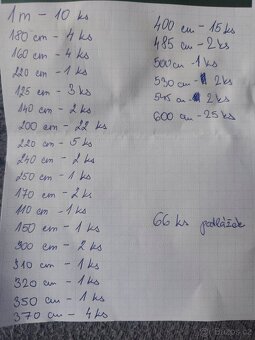 1m - 10 ks
180 cm - 4 ks
160 cm - 4 ks
220 cm - 1 ks
125 cm - 3 ks
140 cm - 2 ks
200 cm - 22 ks
220 cm - 5 ks
240 cm - 2 ks
250 cm - 1 ks
170 cm - 2 ks
110 cm - 1 ks
150 cm - 1 ks
300 cm - 2 ks
310 cm - 1 ks
320 cm - 1 ks
350 cm - 1 ks
370 cm - 4 ks
400 cm - 15 ks
485 cm - 2 ks
500 cm - 1 ks
530 cm - 2 ks
545 cm - 2 ks
600 cm - 25 ks
66 ks podlážek